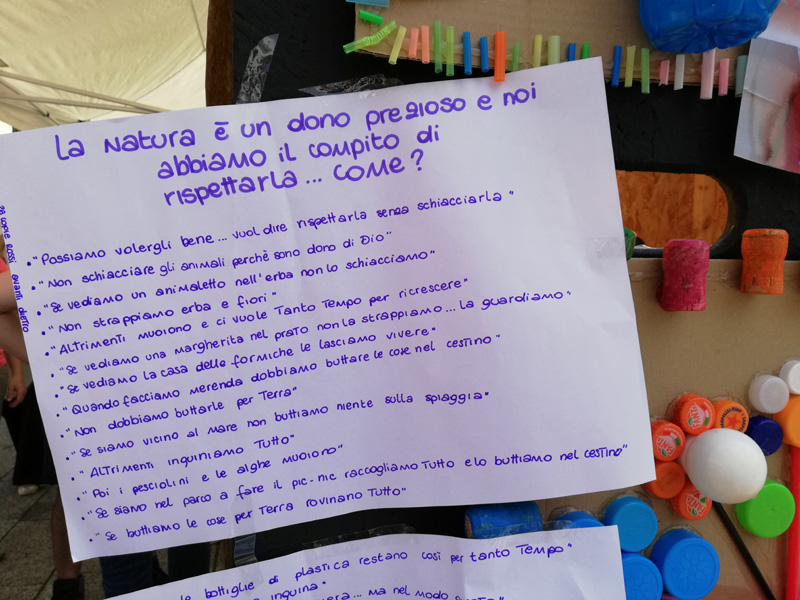 La Natura è un dono prezioso e noi
abbiamo il compito di
rispettarla... Come?
• "Possiamo volergli bene... vuol dire rispettarla senza schiacciarla"
• "Non schiacciare gli animali perchè sono dono di Dio"
• "Se vediamo un animaletto nell'erba non lo schiacciamo"
• "Non strappiamo erba e fiori"
• "Altrimenti muoiono e ci vuole Tanto Tempo per ricrescere"
• "Se vediamo una margherita nel prato non la strappiamo... la guardiamo"
• "Se vediamo la casa delle formiche le lasciamo vivere"
• "Quando facciamo merenda dobbiamo buttare le cose nel cestino"
• "Non dobbiamo buttarle per Terra"
• "Se siamo vicino al mare non buttiamo niente sulla spiaggia"
• "Altrimenti inquiniamo Tutto"
• "Poi i pesciolini e le alghe muoiono"
• "Se siamo nel parco a fare il pic-nic raccogliamo Tutto e lo buttiamo nel cestino"
• "Se buttiamo le cose per Terra rovinano Tutto"
le bottiglie di plastica restano così per tanto Tempo"
inquina"
ma nel modo